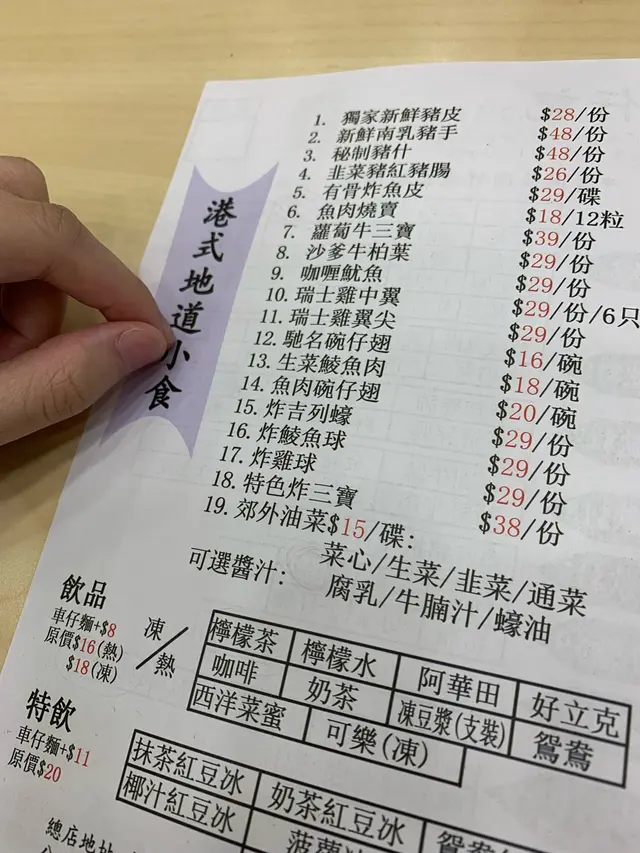 港式地道小食
1. 獨家新鮮豬皮 $28/份
2. 新鮮南乳豬手 $48/份
3. 秘制豬什 $48/份
4. 韭菜豬紅豬腸 $26/份
5. 有骨炸魚皮 $29/碟
6. 魚肉燒賣 $18/12粒
7. 蘿蔔牛三寶 $39/份
8. 沙爹牛柏葉 $29/份
9. 咖喱魷魚 $29/份
10. 瑞士雞中翼 $29/份/6只
11. 瑞士雞翼尖 $29/份
12. 馳名碗仔翅 $16/碗
13. 生菜鯪魚肉 $18/碗
14. 魚肉碗仔翅 $20/碗
15. 炸吉列蠔 $29/份
16. 炸鯪魚球 $29/份
17. 炸雞球 $29/份
18. 特色炸三寶 $38/份
19. 郊外油菜$15/碟: 菜心/生菜/韭菜/通菜
可選醬汁: 腐乳/牛腩汁/蠔油
飲品
車仔麵+$8
原價$16(熱)
$18(凍)
凍/熱
檸檬茶 檸檬水 阿華田 好立克
咖啡 奶茶 凍豆漿(支裝) 鴛鴦
西洋菜蜜 可樂(凍)
特飲
車仔麵+$11
原價$20
抹茶紅豆冰 奶茶紅豆冰
椰汁紅豆冰
總店地址